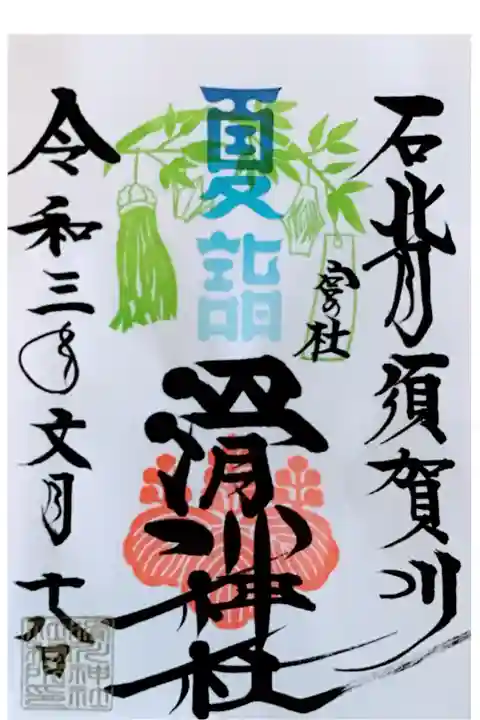 石背須賀川
夏詣
宮の杜
滑川神社
令和三年文月